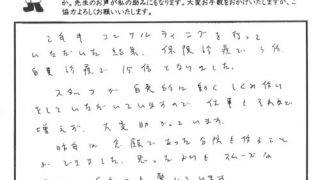 か。先生のお声が私の励みにもなります。大変お手数をおかけいたしますが、ご
協力よろしくお願いいたします。
2年半 コンサルティングを行って
いただいた結果、保険診療で 5倍
自費診療で 15倍となりました。
スタッフが自発的に動くしくみ作り
をしていただいていますので、仕事もそれほど
増えず、大変助かっています。
昨年は念願であった分院も作ること
ができました。思ったよりもスムーズな
驚いています